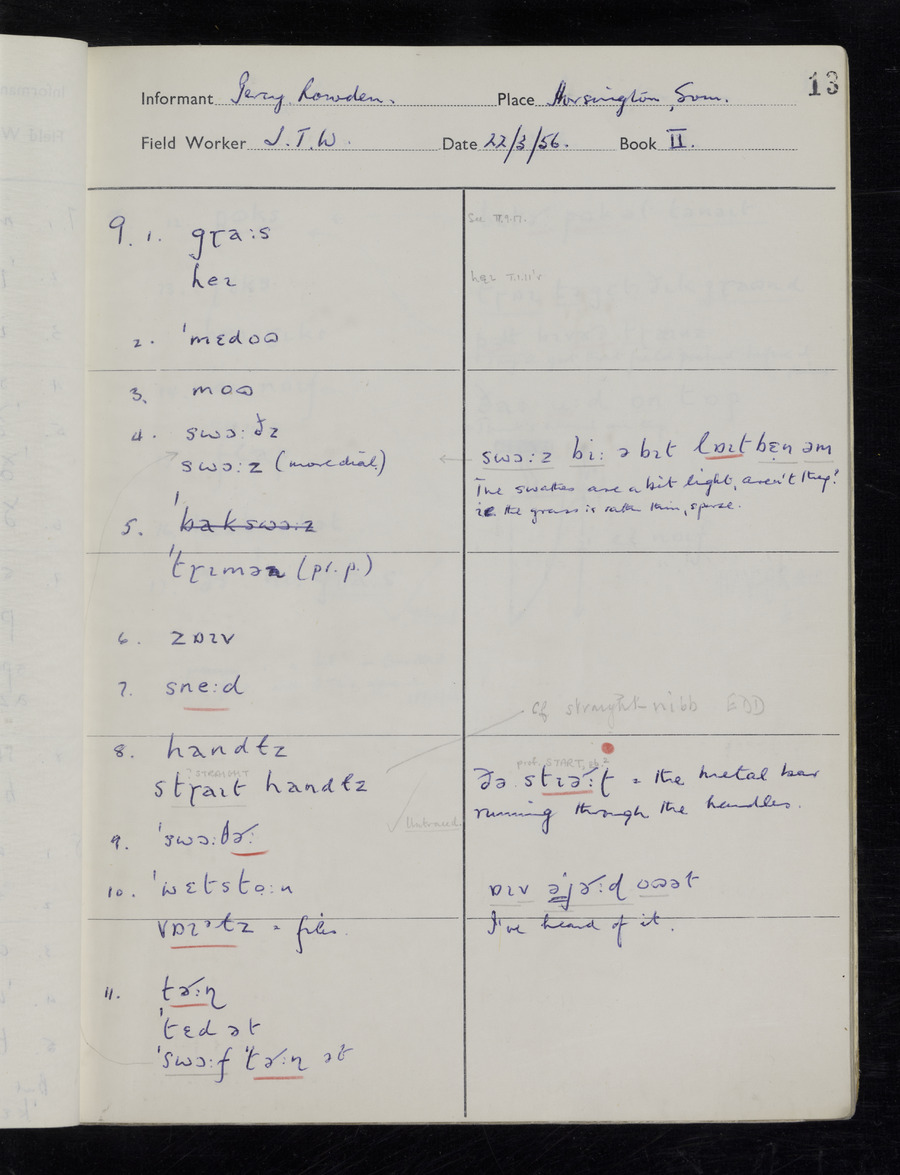 13
Informant Percy Rowden. Place Horsington, Som.
Field Worker J.T.W. Date 22/3/56. Book II.
9. 1. gɽa:s
See II.9.17.
heɪ
2. ˈmɛdoɷ
3. moɷ
4. swɔ:ðz
swɔ:z (more dial.)
swɔ:z bɪ: ə bɪt lɒɪt bɛn əm
The swathes are a bit light, aren't they?
ie the grass is rather thin, sparse.
5. ˈbakswɔ:z
ˈtɽɪmən (pr. p.)
6. zɒɪv
7. sne:d
cf straight-nibb EDD
8. handɫz
? STRAIGHT
stɽaɪt handɫz
prob. START, sb.²
ðə stɪə˞:t = the metal bar
running through the handles.
Untraced
9. ˈswɔ:ðə˞:
10. ˈwɛtsto:n
ɒɪv əjə˞:d oɷət
I've heard of it.
vɒɪəɫz = files.
11. tə˞:ɳ
ˈtɛd ət
ˈswɔ:f ˈtə˞:ɳ ət